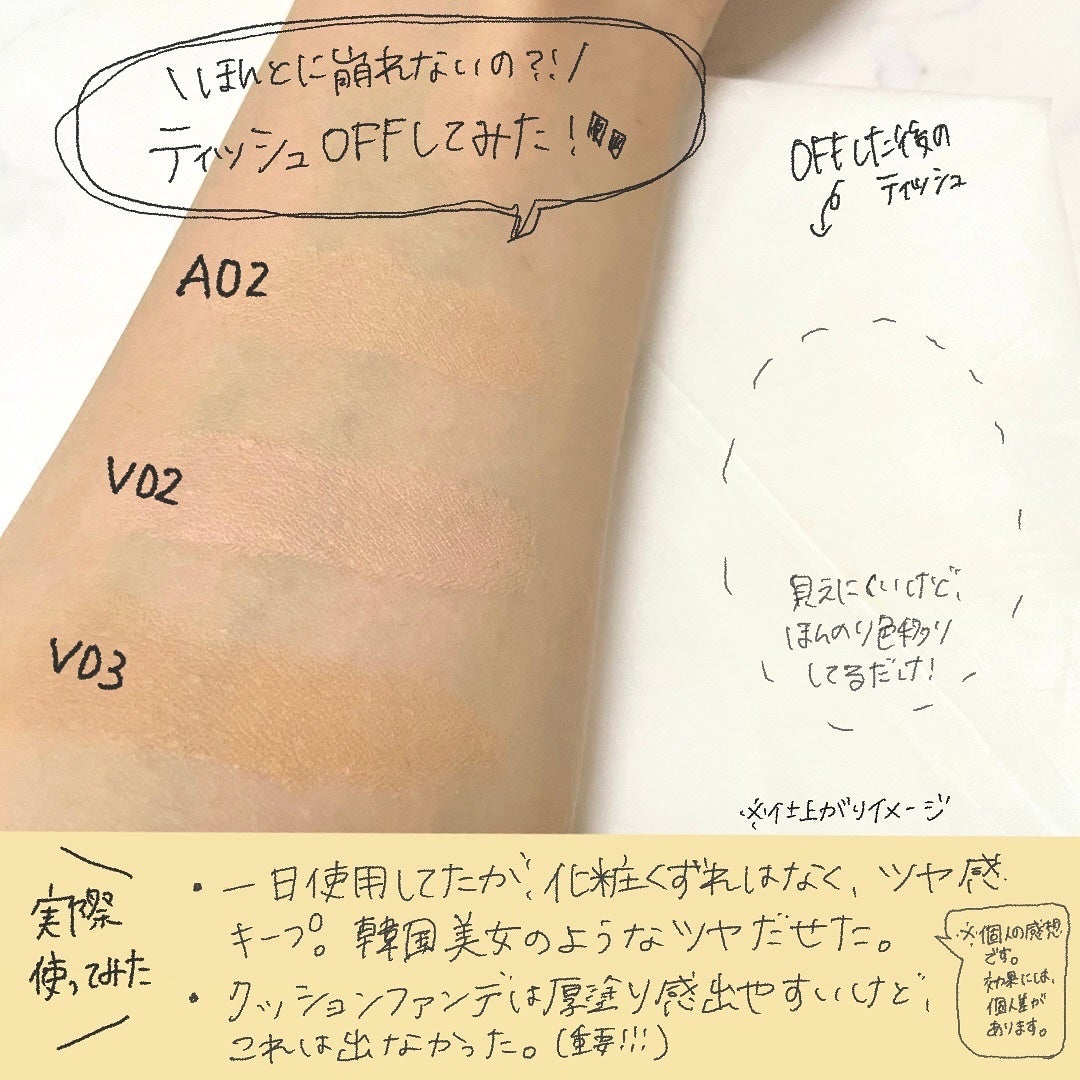 \ほんとに崩れないの?!/
ティッシュOFFしてみた!
OFFした後の
ティッシュ
A02
V02
V03
見えにくいけど、
ほんのり色移り
してるだけ!
※仕上がりイメージ
実際
使ってみた
・一日使用してたが、化粧くずれはなく、ツヤ感
キープ。韓国美女のようなツヤだせた。
・クッションファンデは厚塗り感出やすいけど、
これは出なかった。(重要!!!)
※個人の感想
です。
効果には、
個人差が
あります。